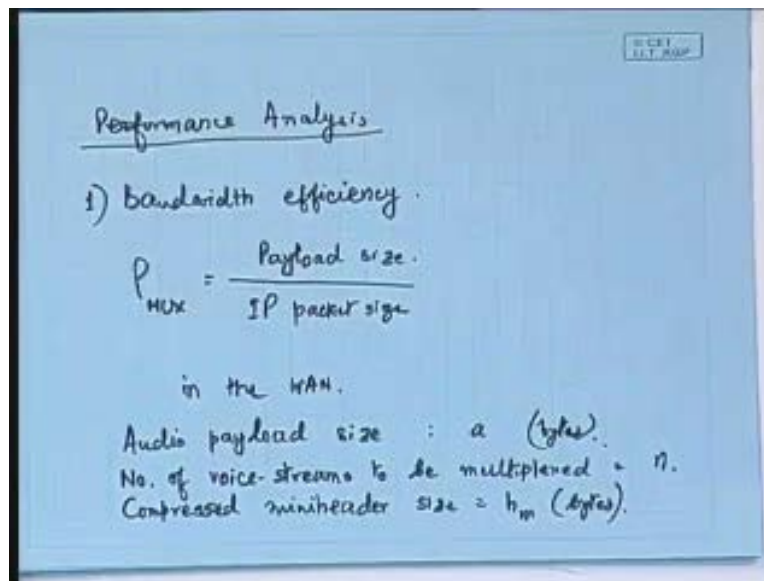 © CET
I.I.T. KGP
Performance Analysis
1) Bandwidth efficiency.
ρ_MUX = Payload size. / IP packet size
in the WAN.
Audio payload size : a (bytes).
No. of voice-streams to be multiplexed = n.
Compressed miniheader size = h_m (bytes).